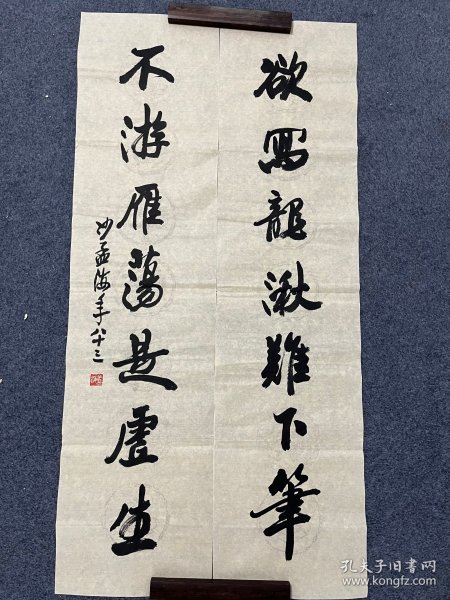 欲寫龍湫難下筆
不游雁蕩是虛生
沙孟海年八十三
孔夫子旧书网
www.kongfz.com